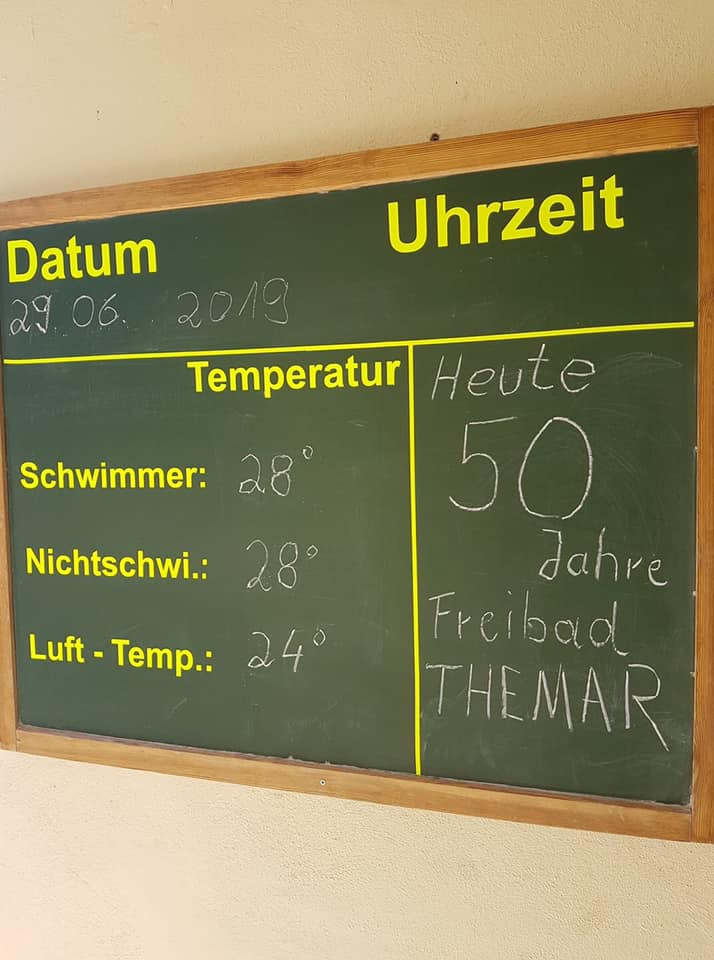 Datum
Uhrzeit
29.06. 2019
Temperatur
Schwimmer: 28°
Nichtschwi.: 28°
Luft - Temp.: 24°
Heute
50
Jahre
Freibad
THEMAR